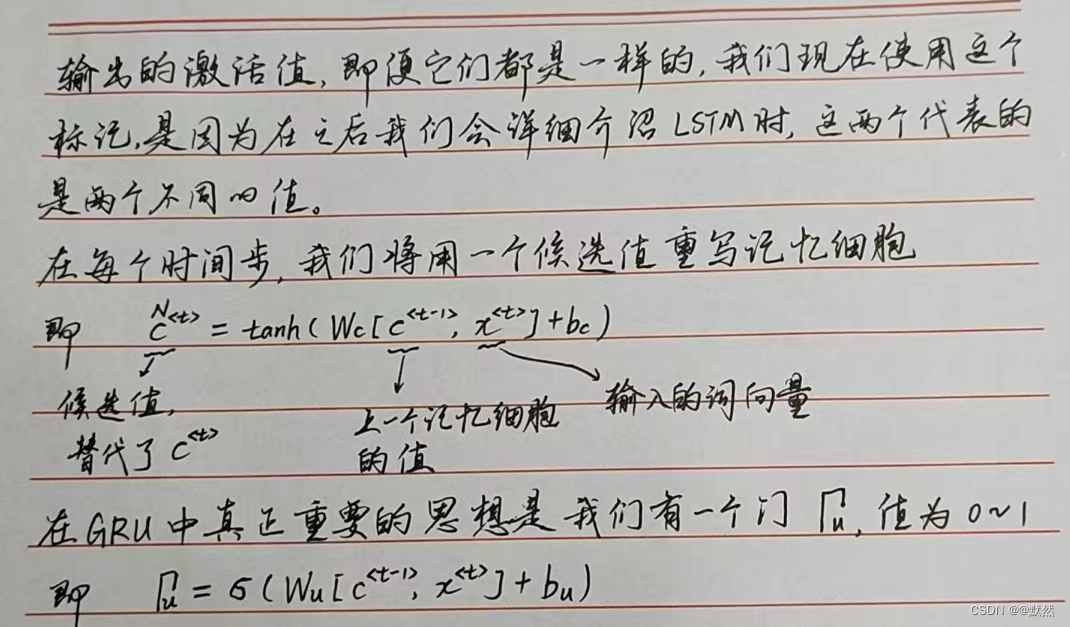 输出的激活值,即便它们都是一样的,我们现在使用这个
标记,是因为在之后我们会详细介绍LSTM时,这两个代表的
是两个不同的值。
在每个时间步,我们将用一个候选值重写记忆细胞
即 c̃^<t> = tanh(Wc[c^<t-1>, x^<t>]+bc)
候选值,
替代了 c^<t>
上一个记忆细胞
的值
输入的词向量
在GRU中真正重要的思想是我们有一个门 Γu,值为0~1
即 Γu = σ(Wu[c^<t-1>, x^<t>]+bu)
CSDN @@默然